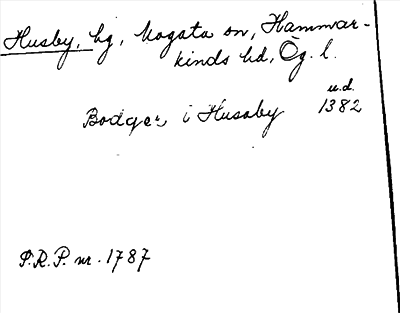 Husby, bg, Mogata sn, Hammar-
kinds hd, Ög. l.
u.d.
Bodger i Husaby 1382
S.R.P. nr. 1787